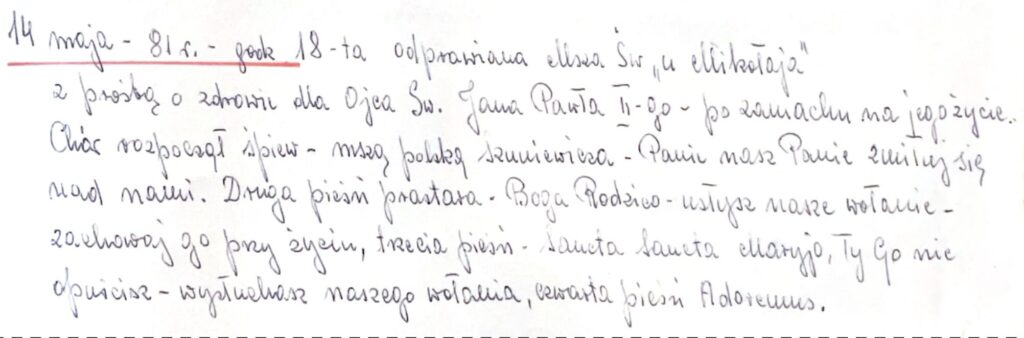 14 maja - 81 r. - godz 18-ta odprawiana Msza Św „u Mikołaja"
z prośbą o zdrowie dla Ojca Św. Jana Pawła II-go - po zamachu na jego życie.
Chór rozpoczął śpiew - mszą polską Szuniewicza - Panie nasz Panie zmiłuj się
nad nami. Druga pieśń prastara - Boga Rodzico - usłysz nasze wołanie -
zachowaj go przy życiu, trzecia pieśń - Sancta Sancta Maryjo, Ty Go nie
opuścisz - wysłuchasz naszego wołania, czwarta pieśń Adoremus.